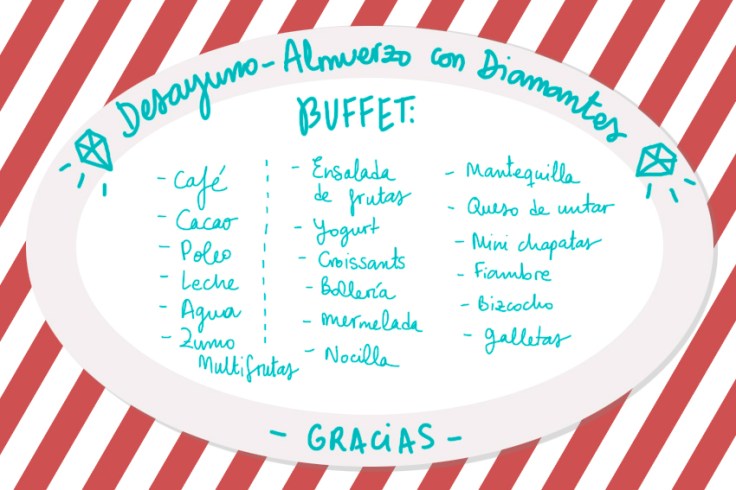 Desayuno-Almuerzo con Diamantes
BUFFET:
- Café
- Cacao
- Poleo
- Leche
- Agua
- Zumo
Multifrutas
- Ensalada
de frutas
- Yogurt
- Croissants
- Bollería
- Mermelada
- Nocilla
- Mantequilla
- Queso de untar
- Mini chapatas
- Fiambre
- Bizcocho
- galletas
- GRACiAS -